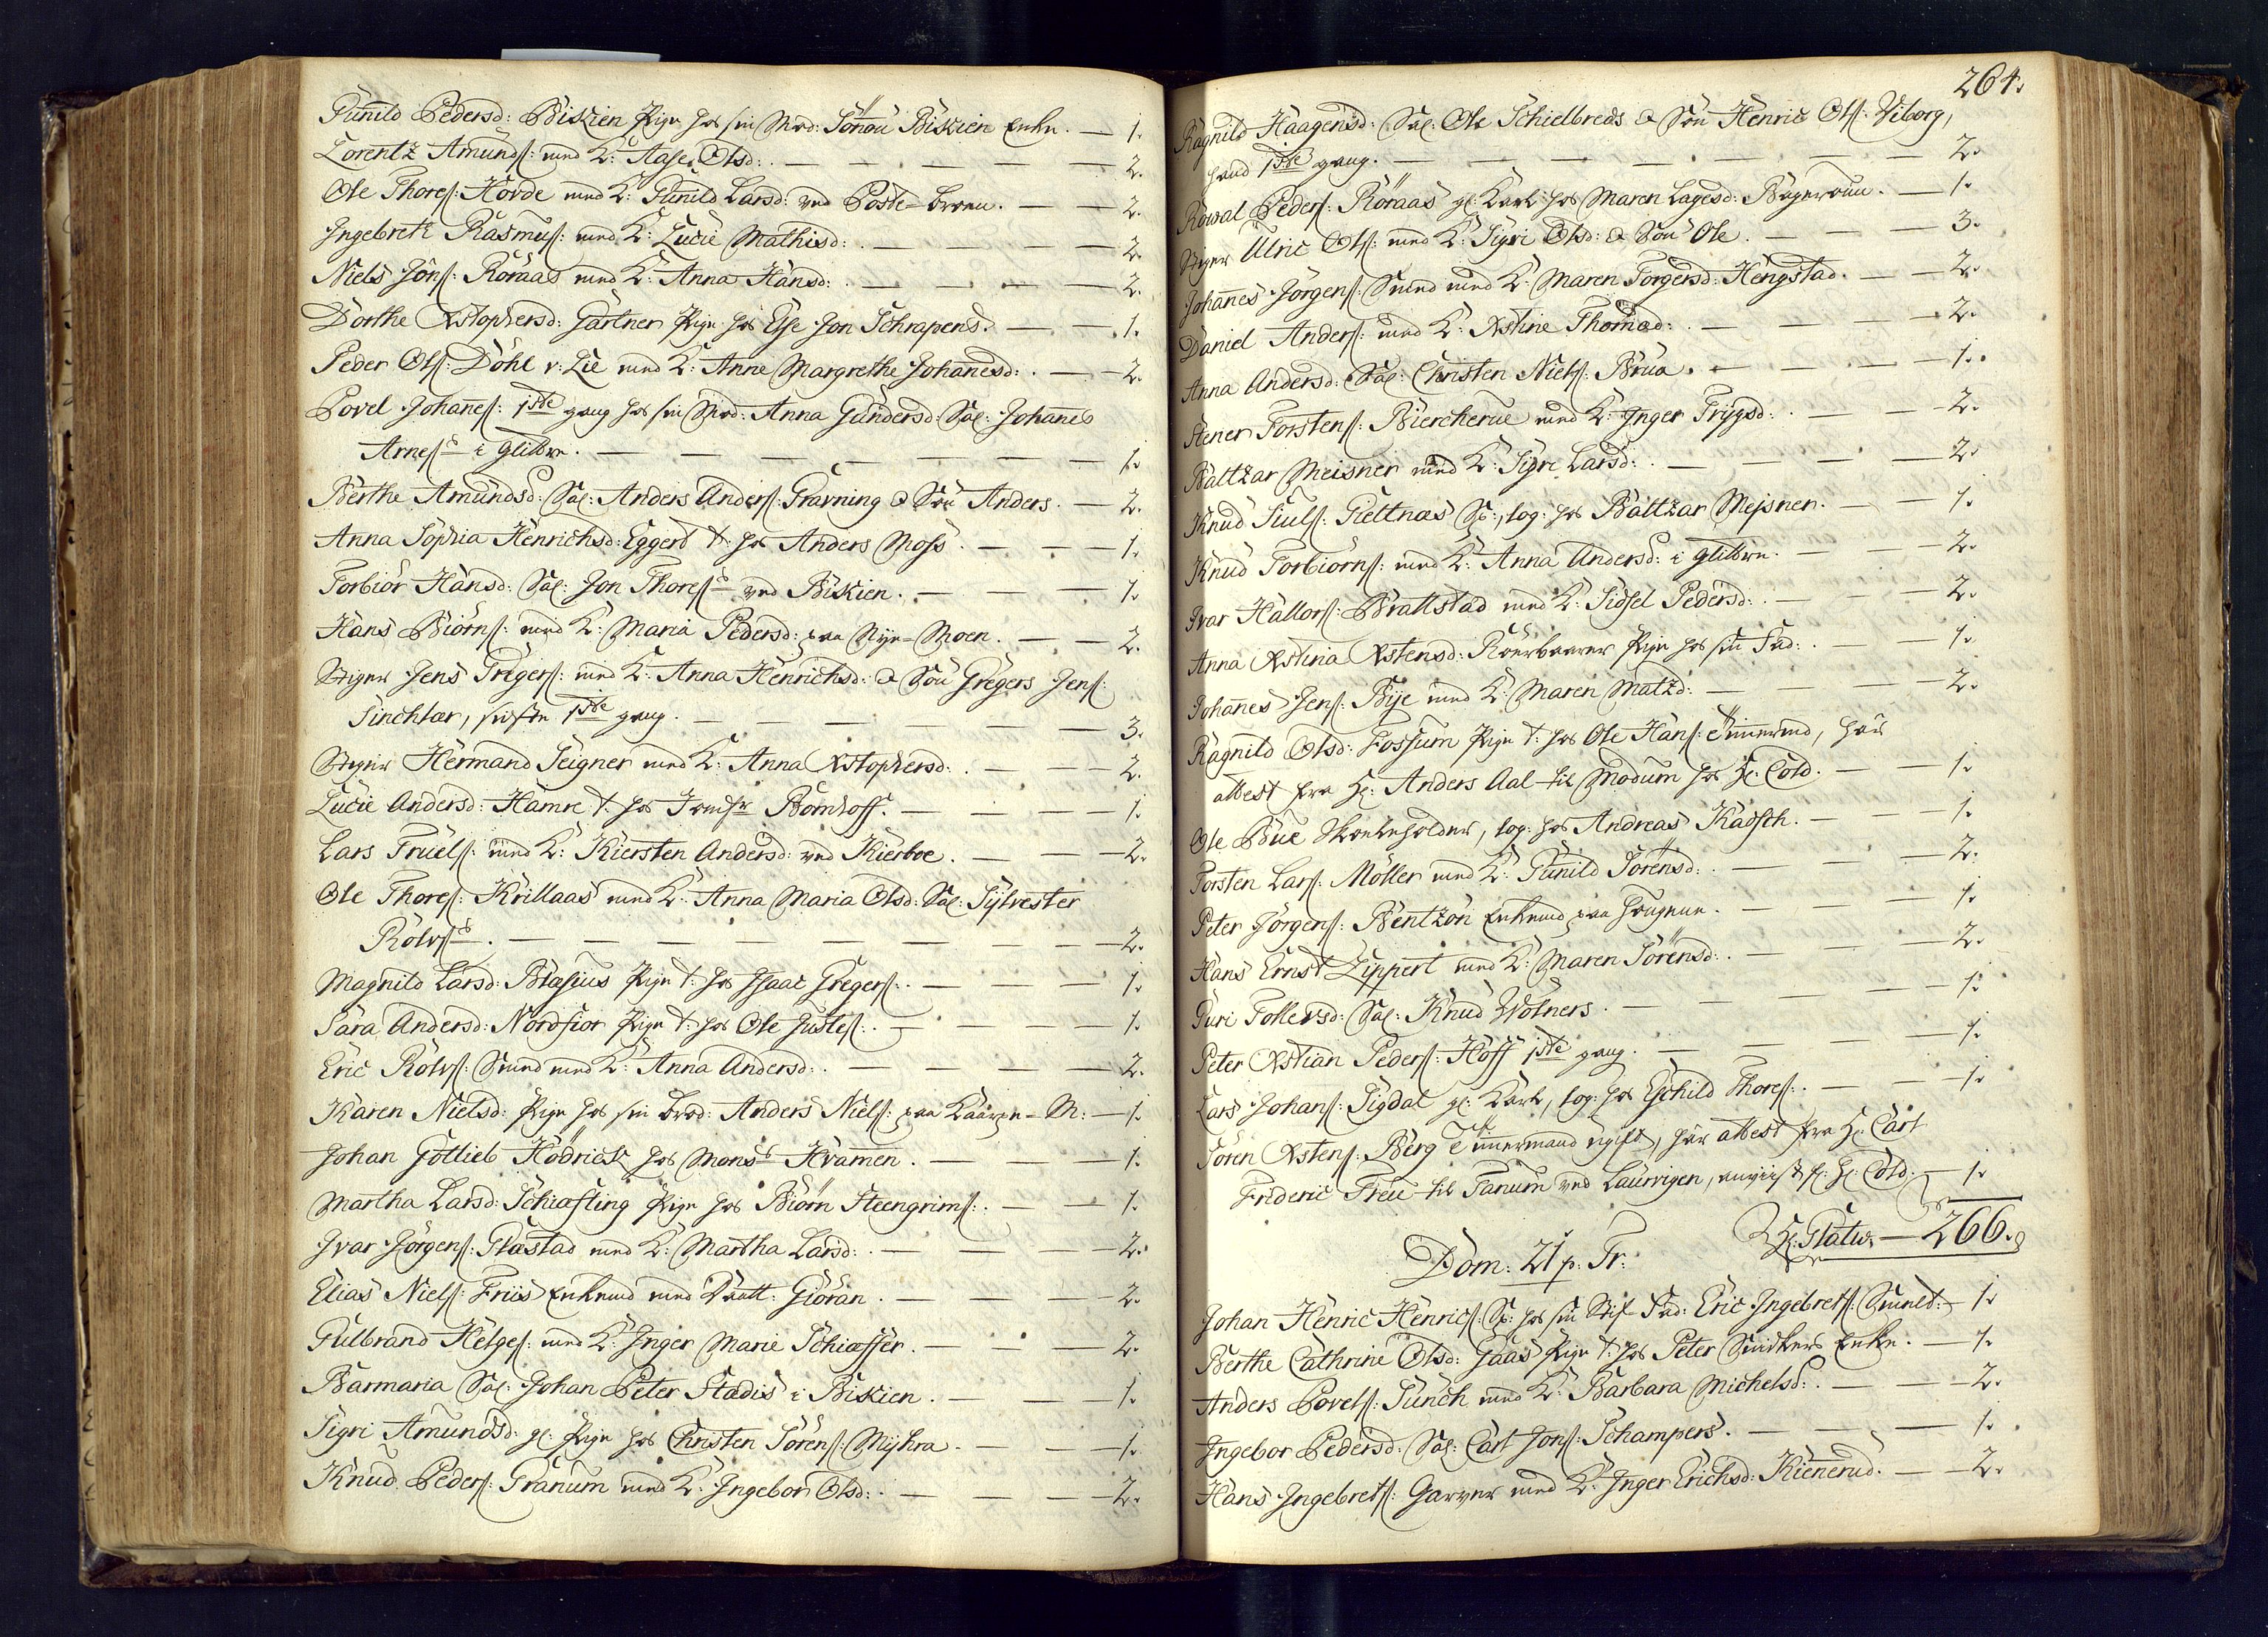 Gunild Pedersd: Biskien Pige hos sin Mod: Sönou Biskien Enke. — 1.
Lorentz Amunds: med K: Aase Olsd: — 2.
Ole Thores: Hovde med K: Gunild Larsd: ved Poste-broen. — 2.
Ingebret Rasmus: med K: Lucie Mathisd: — 2.
Niels Jöns: Röraas med K: Anna Hansd: — 2.
Dorthe Xstophersd: Gärtner Pige hos Else Jon Schrapens. — 1.
Peder Ols: Döhl v: Lie med K: Anne Margrethe Johannesd: — 2.
Povel Johannes: 1ste gang hos sin Mod: Anna Gundersd: Sal: Johannes
Arnes: i Glitre. — 1.
Berthe Amundsd: Sal: Anders Anders: Gravning & Sön Anders. — 2.
Anna Sophia Henrichsd: Eggers t: hos Anders Moss. — 1.
Torbiör Hansd: Sal: Jon Thores: ved Biskien. — 1.
Hans Biörns: med K: Maria Pedersd: paa Nye-Moen. — 2.
Stiger Jens Gregers: med K: Anna Henrichsd: & Sön Gregers Jens:
Sinchlar, sidste 1ste gang. — 3.
Stiger Hermand Seigner med K: Anna Xstophersd: — 2.
Lucie Andersd: Hamre t: hos Jomfr Bornhoff. — 1.
Lars Truels: med K: Kiersten Andersd: ved Kierboe. — 2.
Ole Thores: Krillaas med K: Anna Maria Olsd: Sal: Sylvester
Rolvs:. — 2.
Magnild Larsd: Blasius Pige t: hos Isaac Gregers: — 1.
Sara Andersd: Nordfior Pige t: hos Ole Justes: — 1.
Eric Rolvs: Smed med K: Anna Andersd: — 2.
Karen Nielsd: Pige hos sin brod: Anders Niels: paa Kaarpe-M: — 1.
Johan Gotlieb Hödrich hos Mons: Kramen. — 1.
Martha Larsd: Schiefting Pige hos Biörn Steengrims: — 1.
Ivar Jörgens: Glæstad med K: Martha Larsd: — 2.
Elias Niels: Friis Enkemd med Daatt: Giöran. — 2.
Gulbrand Helges: med K: Inger Marie Schiæffer. — 2.
Barmaria Sal: Johan Peter Stadis i Biskien. — 1.
Sigri Amundsd: gl: Pige hos Christen Sörens: Myhra. — 1.
Knud Peders: Granum med K: Ingebor Olsd: — 2.
264.
Ragnild Haagensd: Sal: Ole Schielbreds & Sön Henric Ols: Viborg,
hand 1ste gang. — 2.
Rowal Peders: Röraas gl: Karl hos Maren Lagesd: Bagerovn. — 1.
Stiger Ulric Ols: med K: Sigri Olsd: & Sön Ole. — 3.
Johannes Jörgens: Smed med K: Maren Torgersd: Hengstad. — 2.
Daniel Anders: med K: Xstine Thomasd: — 2.
Anna Andersd: Sal: Christen Niels: Brua. — 1.
Stener Torstens: Biercherue med K: Inger Trygsd: — 2.
Baltzar Meisner med K: Sigri Larsd: — 2.
Knud Siuls: Giettnæs Sk:, log: hos Baltzar Mejsner. — 1.
Knud Torbiörns: med K: Anna Andersd: i Glitre. — 2.
Ivar Hallors: Brattstad med K: Sidsel Pedersd: — 2.
Anna Xstina Xstensd: Pige hos sin Fad: — 1.
Johannes Jens: Bye med K: Maren Matzd: — 2.
Ragnild Olsd: Fossum Pige t: hos Ole Hans: Timmermd, har
attest fra Hr: Anders Aal til Modum hos Hr: Cold. — 1.
Ole Bue Skoeleholder, log: hos Andreas Kaasch. — 1.
Torsten Lars: Möller med K: Gunild Sörensd: — 2.
Peter Jörgens: Bentzon Enkemd paa Haugene. — 1.
Hans Ernst Zippert med K: Maren Sörensd: — 2.
Guri Tollevsd: Sal: Knud Wolners. — 1.
Peter Xstian Peders: Hoff 1ste gang. — 1.
Lars Johans: Sigdal gl: Karl, log: hos Eschild Thores: — 1.
Sören Xstens: Berg Timmermand ugift, har attest fra Hr: Carl
Frideric Treu til Tanum ved Laurvigen, anviist f: Hr: Cold. — 1.
Hr: Platu: — 266.
Dom: 21 p: Tr:
Johan Henric Henrics: Sk: hos sin Stif Fad: Eric Ingebrets: Smelt: — 1.
Berthe Cathrine Olsd: Gaas Pige t: hos Peter Snidkers Enke. — 1.
Anders Povels: Funch med K: Barbara Michelsd: — 2.
Ingebor Pedersd: Sal: Carl Jons: Schampers. — 1.
Hans Ingebrets: Garver med K: Inger Erichsd: Kienerud. — 2.